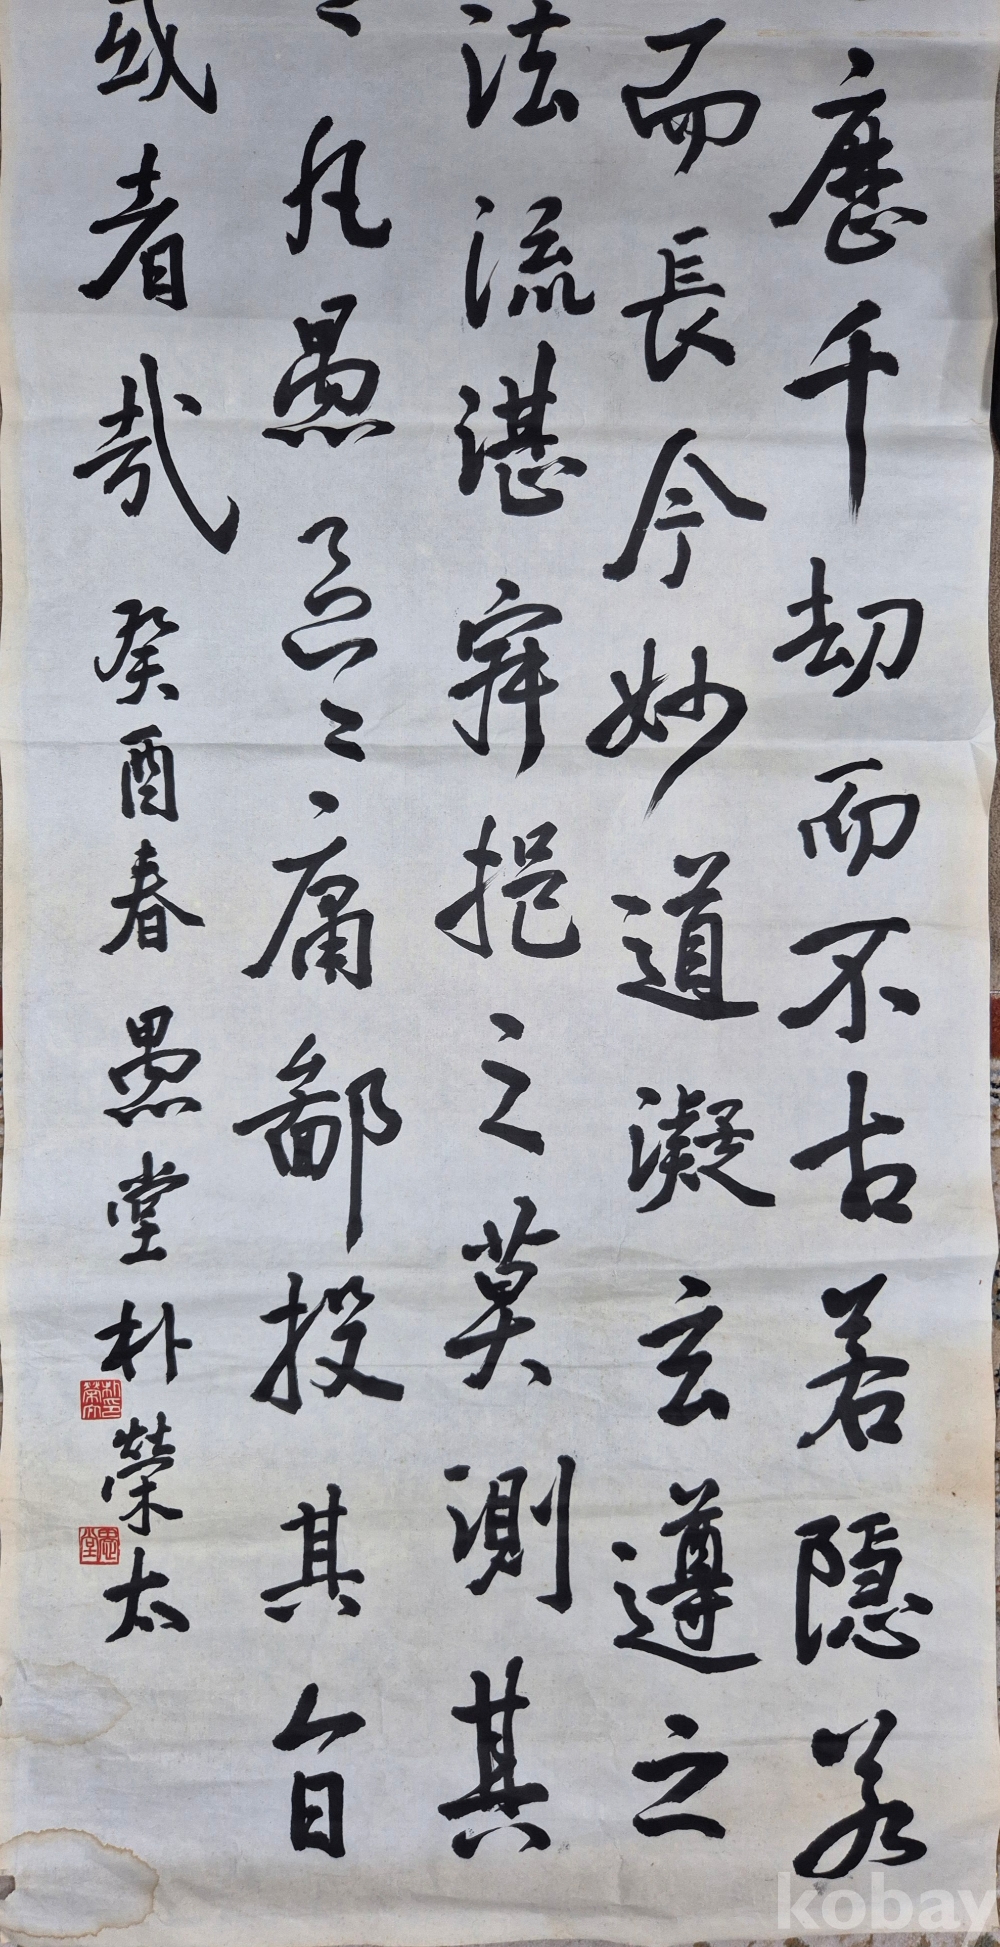 歷千劫而不古若隱若
而長今妙道凝玄遵之
法流湛寂挹之莫測其
〻凡愚區〻庸鄙投其旨
或者哉 癸酉春 愚堂 朴榮太
愚堂
kobay